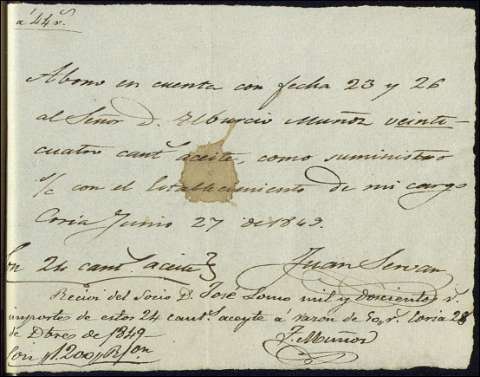 a 44 r.s
Abono en cuenta con fecha 23 y 26
al Señor D. Tiburcio Muñoz veinte-
cuatro cant.s aceite, como suministro
s/c con el Establecimiento de mi cargo
Coria Junio 27 de 1849.
Juan Servan
Son 24 cant.s aceite}
Recivi del Socio D. José Lomo mil y Doscientos r.s
importe de estos 24 cant.s aceyte á razon de 50 r.s Coria 28
de Dbres de 1849-
J. Muñoz
Son 1.200 R.s von